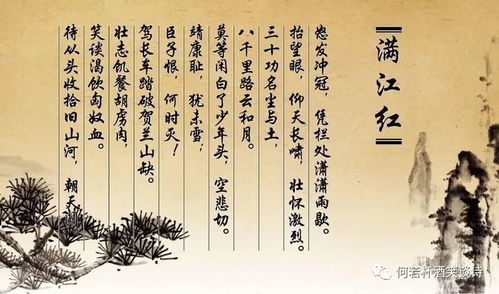 『满江红』
怒发冲冠，凭栏处潇潇雨歇。
抬望眼，仰天长啸，壮怀激烈。
三十功名尘与土，
八千里路云和月。
莫等闲白了少年头、空悲切。
靖康耻，犹未雪；
臣子恨，何时灭！
驾长车踏破贺兰山缺。
壮志饥餐胡虏肉，
笑谈渴饮匈奴血。
待从头收拾旧山河，朝天
何若杯酒笑谈诗